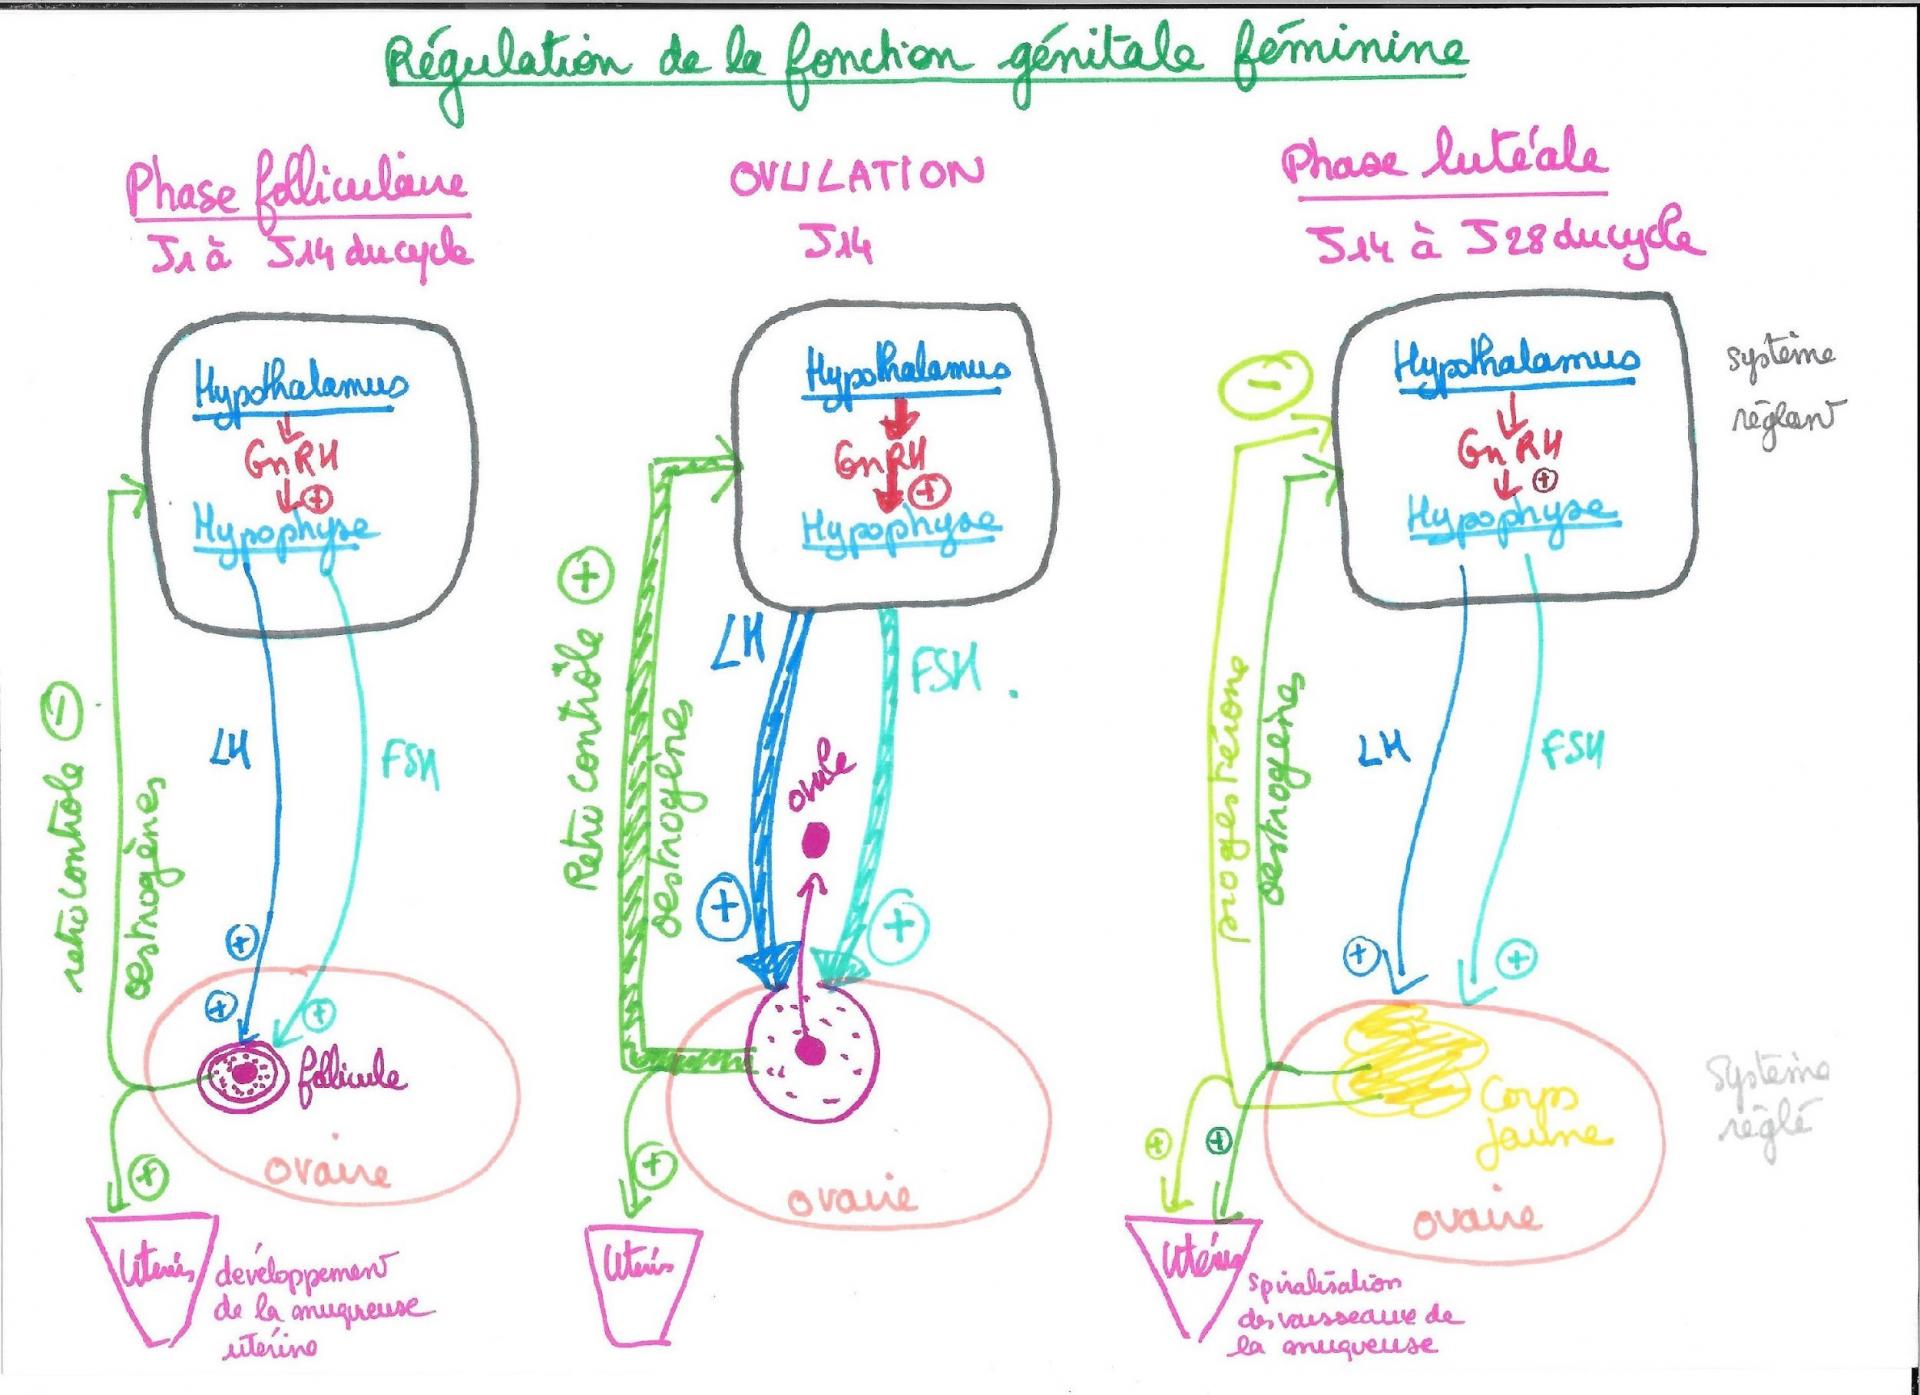 Régulation de la fonction génitale féminine
Phase folliculaire
J1 à J14 du cycle
Hypothalamus
GnRH
+
Hypophyse
LH
FSH
retrocontrole -
oestrogènes
+
+
+
follicule
ovaire
+
Utérus
développement
de la muqueuse
utérine
OVULATION
J14
Hypothalamus
GnRH
+
Hypophyse
LH
FSH
Retro contrôle +
oestrogènes
ovule
+
+
ovaire
+
Utérus
Phase lutéale
J14 à J28 du cycle
-
Hypothalamus
GnRH
+
Hypophyse
système
réglant
progestérone
oestrogènes
LH
FSH
+
+
Corps
jaune
ovaire
système
réglé
+
+
Utérus
spiralisation
des vaisseaux de
la muqueuse